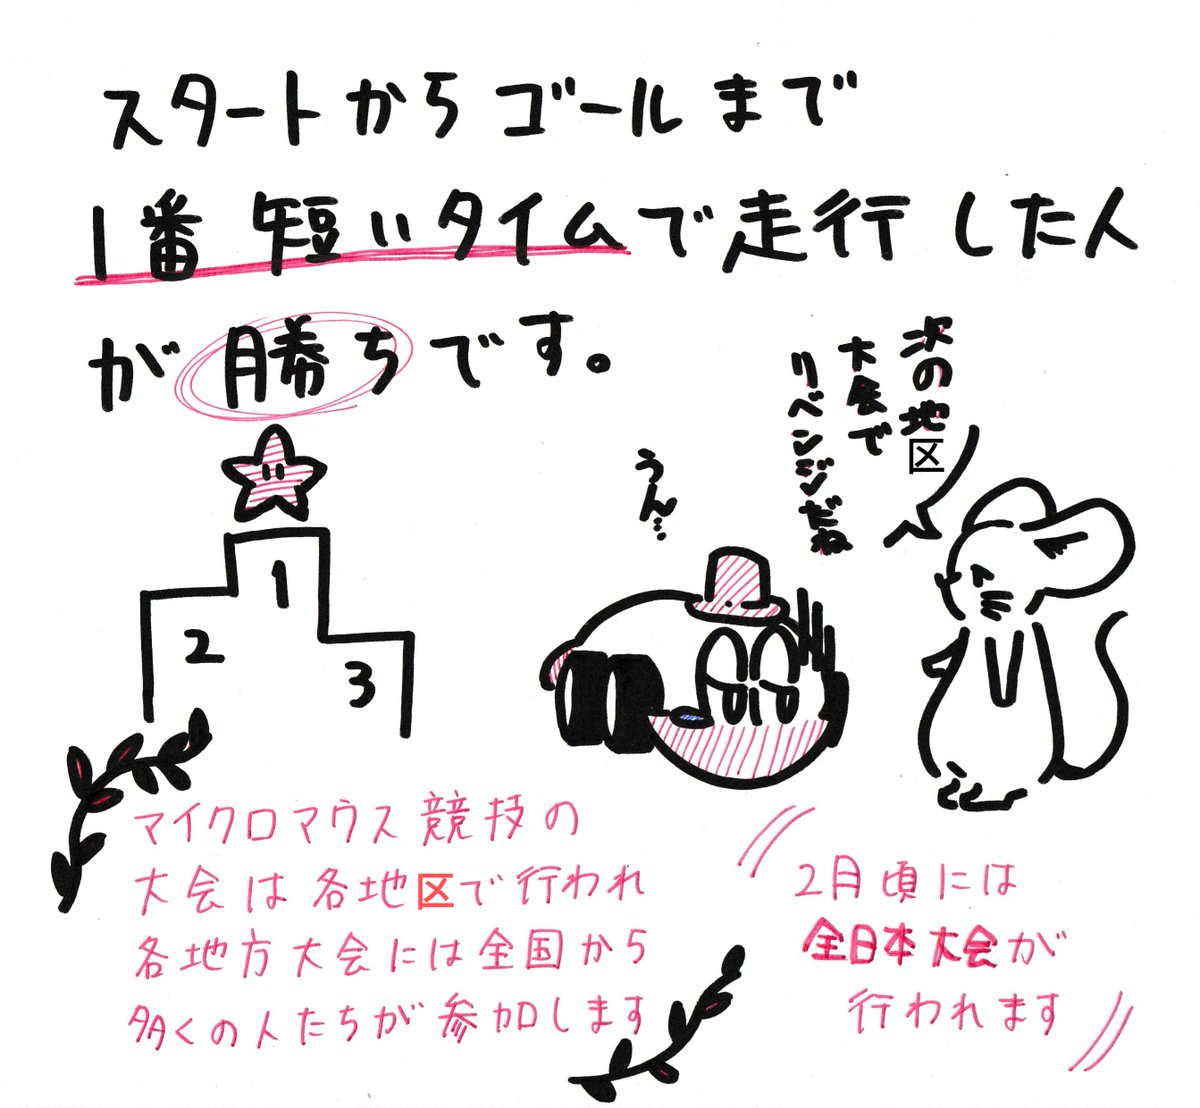 スタートからゴールまで
1番短いタイムで走行した人
が勝ちです。
次の地区
大会で
リベンジだね
うん…
1
2
3
マイクロマウス競技の
大会は各地区で行われ
各地方大会には全国から
多くの人たちが参加します
2月頃には
全日本大会が
行われます